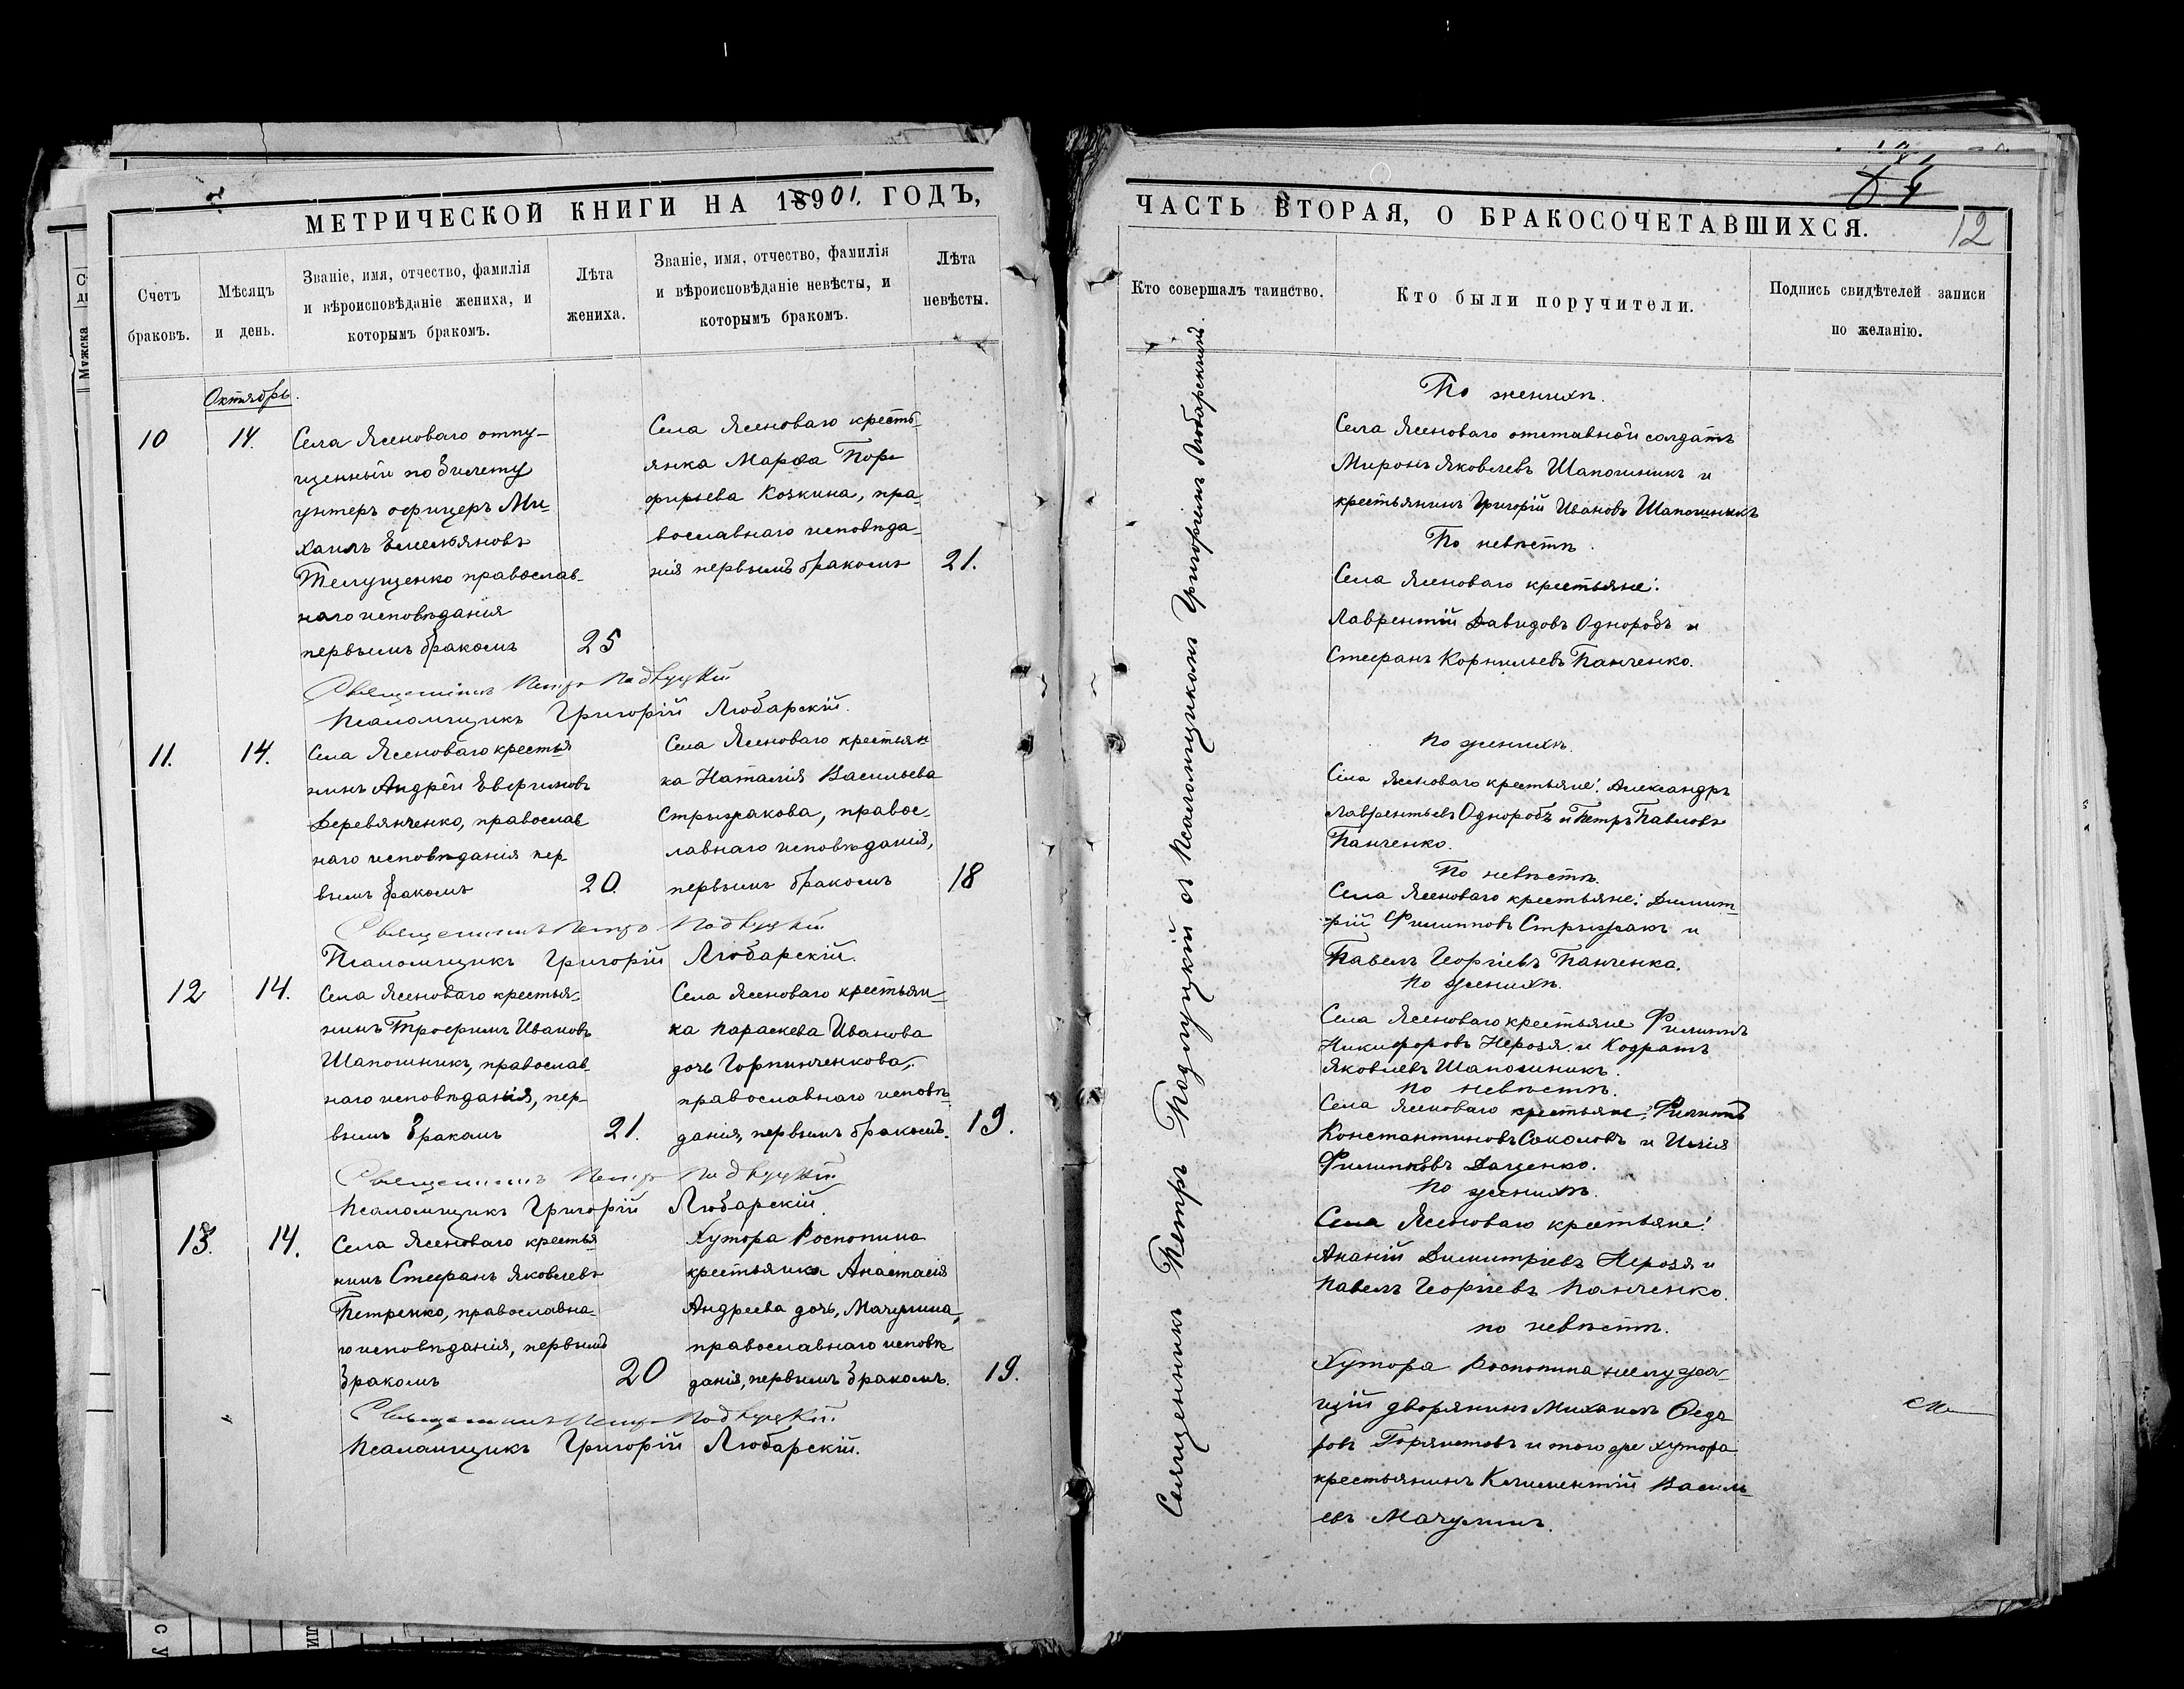 МЕТРИЧЕСКОЙ КНИГИ НА 18901. ГОДЪ,
Счетъ браковъ.
Мѣсяцъ и день.
Званіе, имя, отчество, фамилія
и вѣроисповѣданіе жениха, и
которымъ бракомъ.
Лѣта жениха.
Званіе, имя, отчество, фамилія
и вѣроисповѣданіе невѣсты, и
которымъ бракомъ.
Лѣта невѣсты.
Октябрь.
10
14.
Села Ясеноваго отпу-
щенный по билету
унтеръ офицеръ Ми-
хаилъ Емельяновъ
Телущенко православ-
наго исповѣданія
первымъ бракомъ
25
Села Ясеноваго кресть-
янка Марѳа Пор-
фирьева Козкина, пра-
вославнаго исповѣда-
нія первымъ бракомъ
21.
Священникъ Петръ Подлуцкій
Псаломщикъ Григорій Любарскій.
11.
14.
Села Ясеноваго крестья
нинъ Андрей Евфимовъ
Деревянченко, православ
наго исповѣданія пер-
вымъ бракомъ
20.
Села Ясеноваго крестьян
ка Наталія Васильева
Стрыжакова, правос-
лавнаго исповѣданія,
первымъ бракомъ
18
Священникъ Петръ Подлуцкій
Псаломщикъ Григорій Любарскій.
12
14.
Села Ясеноваго крестья-
нинъ Трофимъ Ивановъ
Шапошникъ, православ-
наго исповѣданія, пер-
вымъ бракомъ
21.
Села Ясеноваго крестьян-
ка Параскева Иванова
дочь Горпинченкова,
православнаго исповѣ-
данія, первымъ бракомъ.
19.
Священникъ Петръ Подлуцкій
Псаломщикъ Григорій Любарскій.
13.
14.
Села Ясеноваго крестья
нинъ Стефанъ Яковлевъ
Петренко, православна-
го исповѣданія, первымъ
бракомъ
20
Хутора Роспопина
крестьянка Анастасія
Андреева дочь, Мачулина,
православнаго исповѣ
данія, первымъ бракомъ.
19.
Священникъ Петръ Подлуцкій.
Псаломщикъ Григорій Любарскій.
12
ЧАСТЬ ВТОРАЯ, О БРАКОСОЧЕТАВШИХСЯ.
Кто совершалъ таинство.
Кто были поручители.
Подпись свидѣтелей записи
по желанію.
Священникъ Петръ Подлуцкій съ Псаломщикомъ Григоріемъ Любарскимъ.
По женихѣ.
Села Ясеноваго отставной солдатъ
Миронъ Яковлевъ Шапошникъ и
крестьянинъ Григорій Ивановъ Шапошникъ
По невѣстѣ.
Села Ясеноваго крестьяне:
Лаврентій Давидовъ Одноробъ и
Стефанъ Корнильевъ Панченко.
По женихѣ.
Села Ясеноваго крестьяне: Александръ
Лаврентьевъ Одноробъ и Петръ Павловъ
Панченко.
По невѣстѣ.
Села Ясеноваго крестьяне: Димит-
рій Филипповъ Стрыжакъ и
Павелъ Георгіевъ Панченка.
По женихѣ.
Села Ясеноваго крестьяне Филиппъ
Никифоровъ Нерозя и Кодратъ
Яковлевъ Шапошникъ.
По невѣстѣ.
Села Ясеноваго крестьяне: Филиппъ
Константиновъ Соколовъ и Илія
Филипповъ Даценко.
По женихѣ.
Села Ясеноваго крестьяне:
Ананій Димитріевъ Нерозя и
Павелъ Георгіевъ Панченко.
по невѣстѣ.
Хутора Роспопина неслужа-
щій дворянинъ Михаилъ Ѳедо
ровъ и того же хутора
крестьянинъ Климентій Василь-
евъ Мачулинъ.